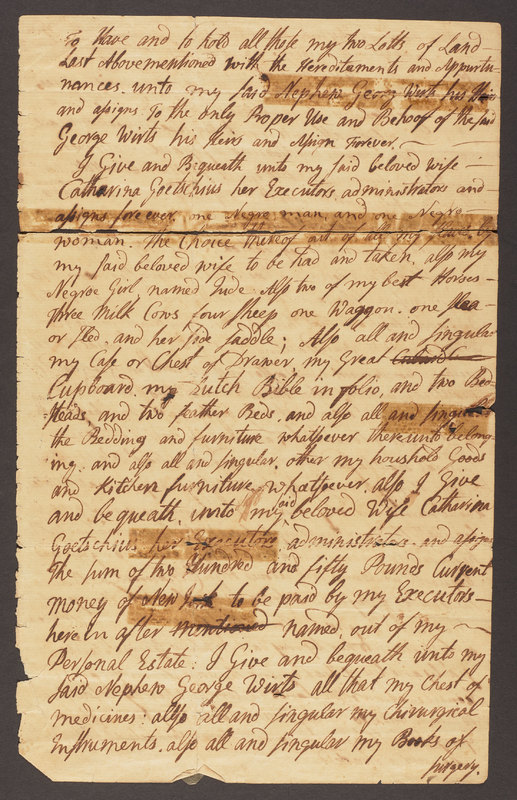 To Have and to hold all those my two Lotts of Land
Last Abovementioned with the Hereditaments and Appurte-
nances. unto my said Nephew Georg Wirts his Heirs
and assigns. To the only Proper Use and Behoof of the said
George Wirts his Heirs and Assign Forever.
I Give and Bequeath unto my said beloved wife
Catharina Goetschius her Executors, administrators and
assigns forever, one Negro man, and one Negro
woman. the Choice thereof out of all my by
my said beloved wife to be had and taken, also my
Negroe Girl named Jude. Also two of my best Horses
three Milk Cows four sheep one Waggon. one
or Sled, and her side saddle; Also all and singular
my Case or Chest of Drawer, my Great
Cupboard, my Dutch Bible in folio, and two Bed
steads, and two feather Beds. and also all and singular
the Bedding and furniture whatsoever thereunto belong
ing. and also all and singular, other my houshold Goods
and Kitchen furniture whatsoever. also I Give
and bequeath, unto my said beloved Wife Catharina
Goetschius her Executors, administrators and assigns
The sum of two Hundred and fifty Pounds Current
money of New York to be paid by my Executors
herein after mentioned named, out of my
Personal Estate: I Give and bequeath unto my
said Nephew George Wirts all that my Chest of
medicines: also all and singular my Chirurgical
Instruments. also all and singular my Books of
surgery.